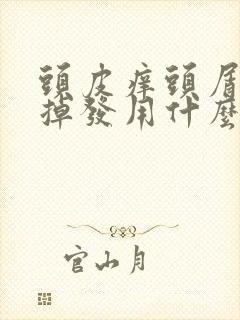 頭皮痒頭屑
掉發用什麼
官山月